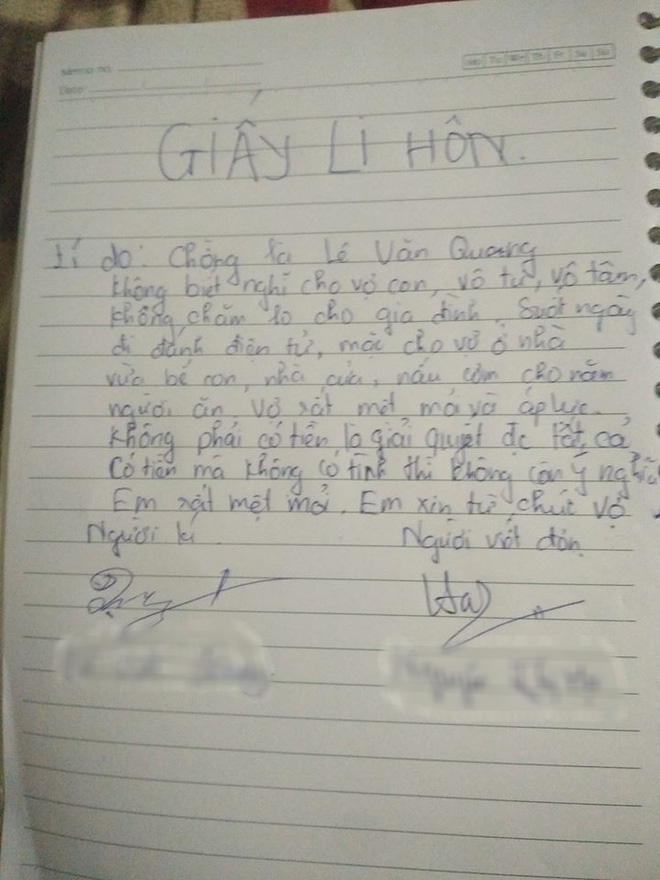 Memo no.
Date
Mo Tu We Th Fr Sa Su
GIẤY LI HÔN.
Lí do: Chồng là Lê Văn Quang
không biết nghĩ cho vợ con, vô tư, vô tâm,
không chăm lo cho gia đình. Suốt ngày
đi đánh điện tử, mặc cho vợ ở nhà
vừa bế con, nhà cửa, nấu cơm cho năm
người ăn. Vợ rất mệt mỏi và áp lực.
Không phải có tiền là giải quyết đc tất cả
Có tiền mà không có tình thì không còn ý nghĩa
Em rất mệt mỏi. Em xin từ chức vợ
Người kí
Người viết đơn